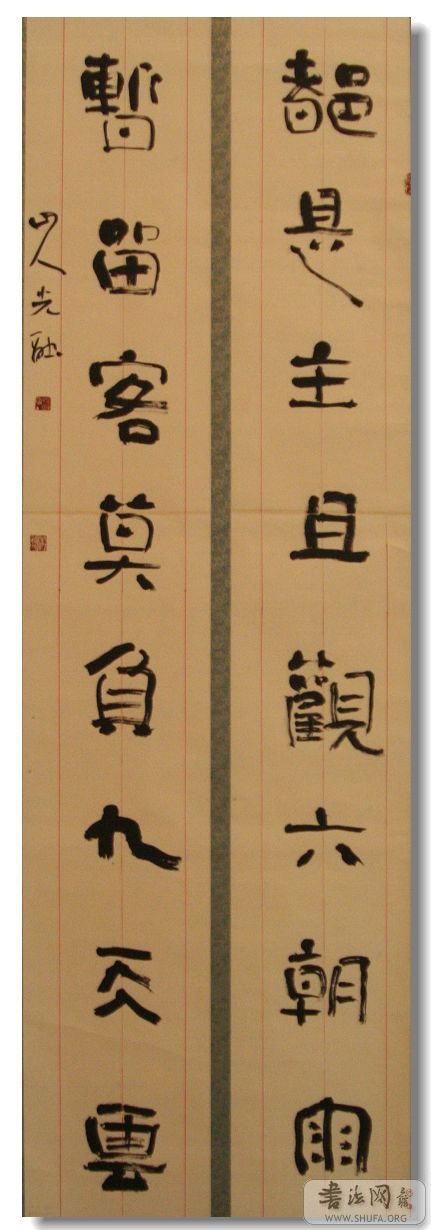 都是主且觀六朝雨
暫留客莫負九天雲
山人光
書法网
WWW.SHUFA.ORG